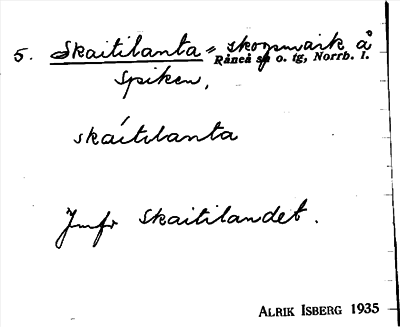 5. Skaitilanta = skogsmark å
Råneå sn o. tg, Norrb. l.
Spiken.
skáitilanta
Jmfr Skaitilandet.
ALRIK ISBERG 1935